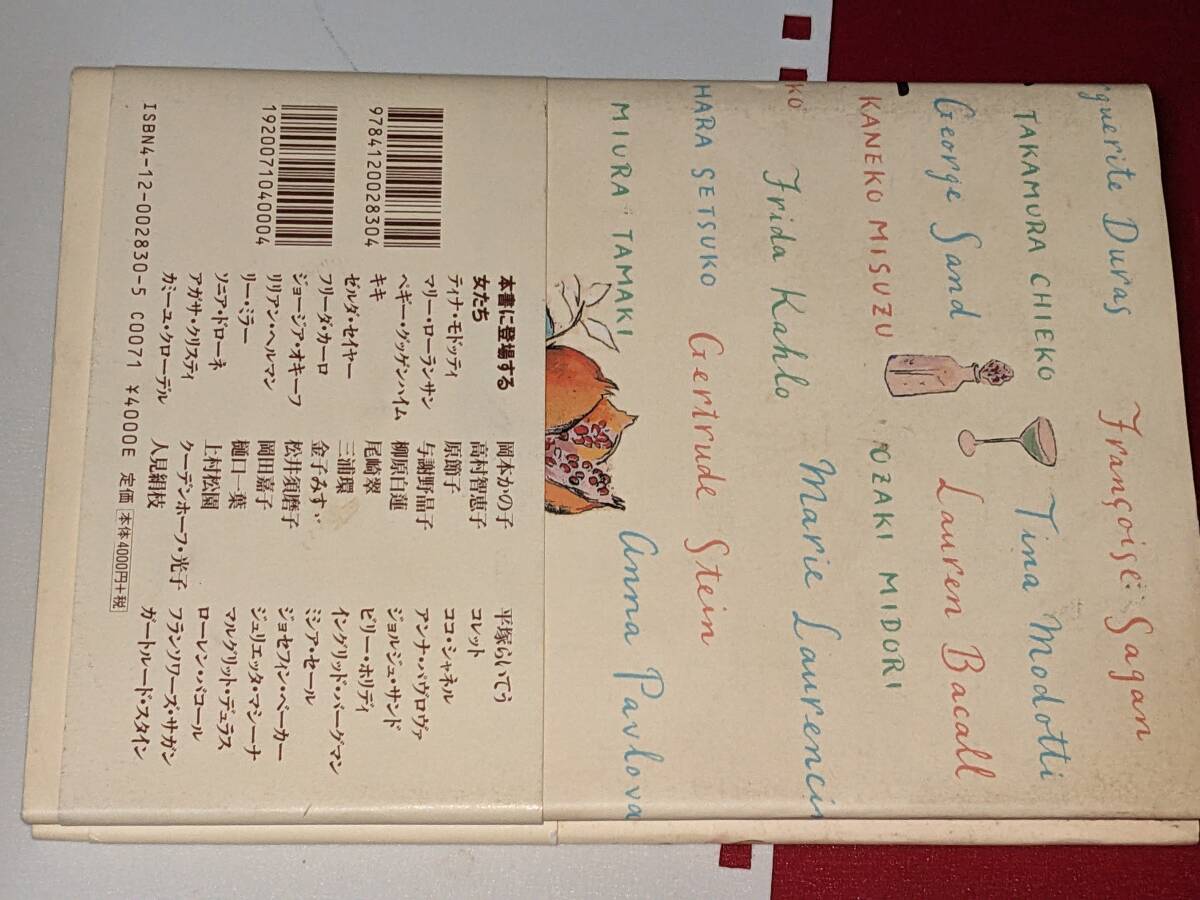 guerite Duras
Françoise Sagan
TAKAMURA CHIEKO
Tina Modotti
George Sand
Lauren Bacall
KANEKO MISUZU
OZAKI MIDORI
KO
Frida Kahlo
Marie Laurencin
HARA SETSUKO
Gertrude Stein
MIURA TAMAKI
Anna Pavlova
9784120028304
1920071040004
本書に登場する
女たち
ティナ・モドッティ
マリー・ローランサン
ペギー・グッゲンハイム
キキ
ゼルダ・セイヤー
フリーダ・カーロ
ジョージア・オキーフ
リリアン・ヘルマン
リー・ミラー
ソニア・ドローネ
アガサ・クリスティ
カミーユ・クローデル
岡本かの子
高村智恵子
原節子
与謝野晶子
柳原白蓮
尾崎翠
三浦環
金子みすゞ
松井須磨子
岡田嘉子
樋口一葉
上村松園
クーデンホーフ・光子
人見絹枝
平塚らいてう
コレット
ココ・シャネル
アンナ・パヴロヴァ
ジョルジュ・サンド
ビリー・ホリデイ
イングリッド・バーグマン
ミシア・セール
ジョセフィン・ベーカー
ジュリエッタ・マシーナ
マルグリット・デュラス
ローレン・バコール
フランソワーズ・サガン
ガートルード・スタイン
ISBN4-12-002830-5 C0071 ¥4000E 定価 本体4000円+税